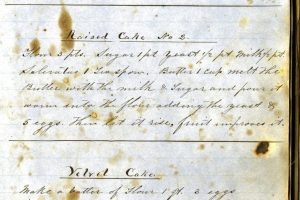 Raised Cake No 2.
Flour 3 pts. Sugar 1 pt Yeast 1/2 pt Milk 1/2 pt.
Saleratus 1 Teaspoon. Butter 1 cup melt the
Butter with the milk & Sugar and pour it
warm into the flour adding the yeast &
5 eggs. Then let it rise, fruit improves it.
Velvet Cake.
Make a batter of Flour 1 pt. 3 eggs